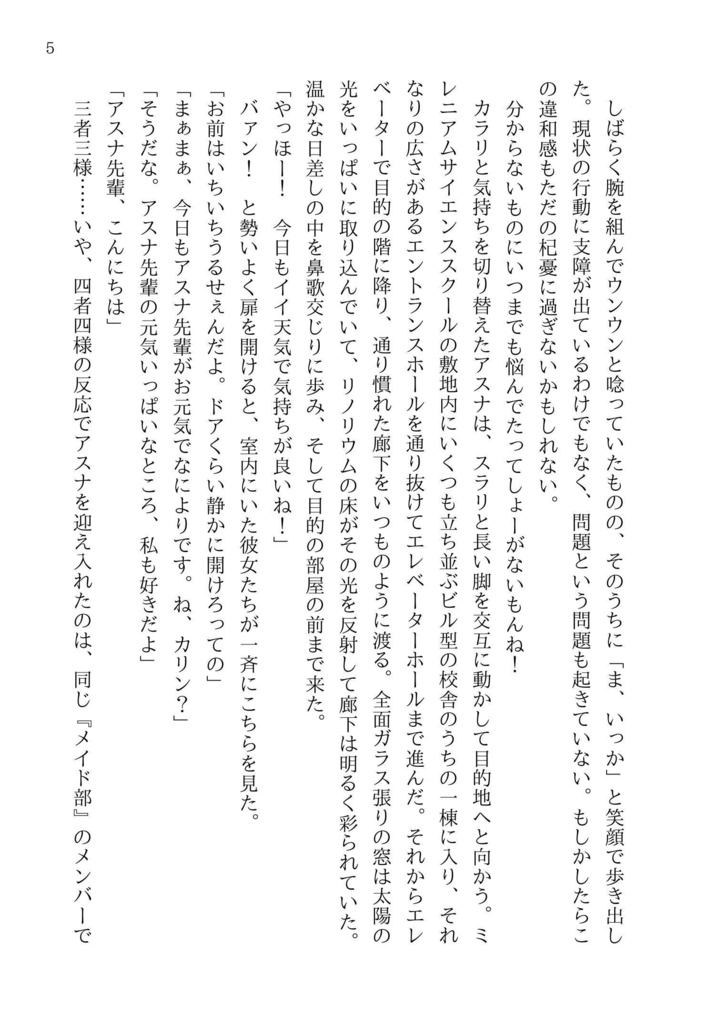 5
しばらく腕を組んでウンウンと唸っていたものの、そのうちに「ま、いっか」と笑顔で歩き出し
た。現状の行動に支障が出ているわけでもなく、問題という問題も起きていない。もしかしたらこ
の違和感もただの杞憂に過ぎないかもしれない。
分からないものにいつまでも悩んでたってしょーがないもんね！
カラリと気持ちを切り替えたアスナは、スラリと長い脚を交互に動かして目的地へと向かう。ミ
レニアムサイエンススクールの敷地内にいくつも立ち並ぶビル型の校舎のうちの一棟に入り、それ
なりの広さがあるエントランスホールを通り抜けてエレベーターホールまで進んだ。それからエレ
ベーターで目的の階に降り、通り慣れた廊下をいつものように渡る。全面ガラス張りの窓は太陽の
光をいっぱいに取り込んでいて、リノリウムの床がその光を反射して廊下は明るく彩られていた。
温かな日差しの中を鼻歌交じりに歩み、そして目的の部屋の前まで来た。
「やっほー！　今日もイイ天気で気持ちが良いね！」
バァン！　と勢いよく扉を開けると、室内にいた彼女たちが一斉にこちらを見た。
「お前はいちいちうるせぇんだよ。ドアくらい静かに開けろっての」
「まぁまぁ、今日もアスナ先輩がお元気でなによりです。ね、カリン？」
「そうだな。アスナ先輩の元気いっぱいなところ、私も好きだよ」
「アスナ先輩、こんにちは」
三者三様……いや、四者四様の反応でアスナを迎え入れたのは、同じ『メイド部』のメンバーで